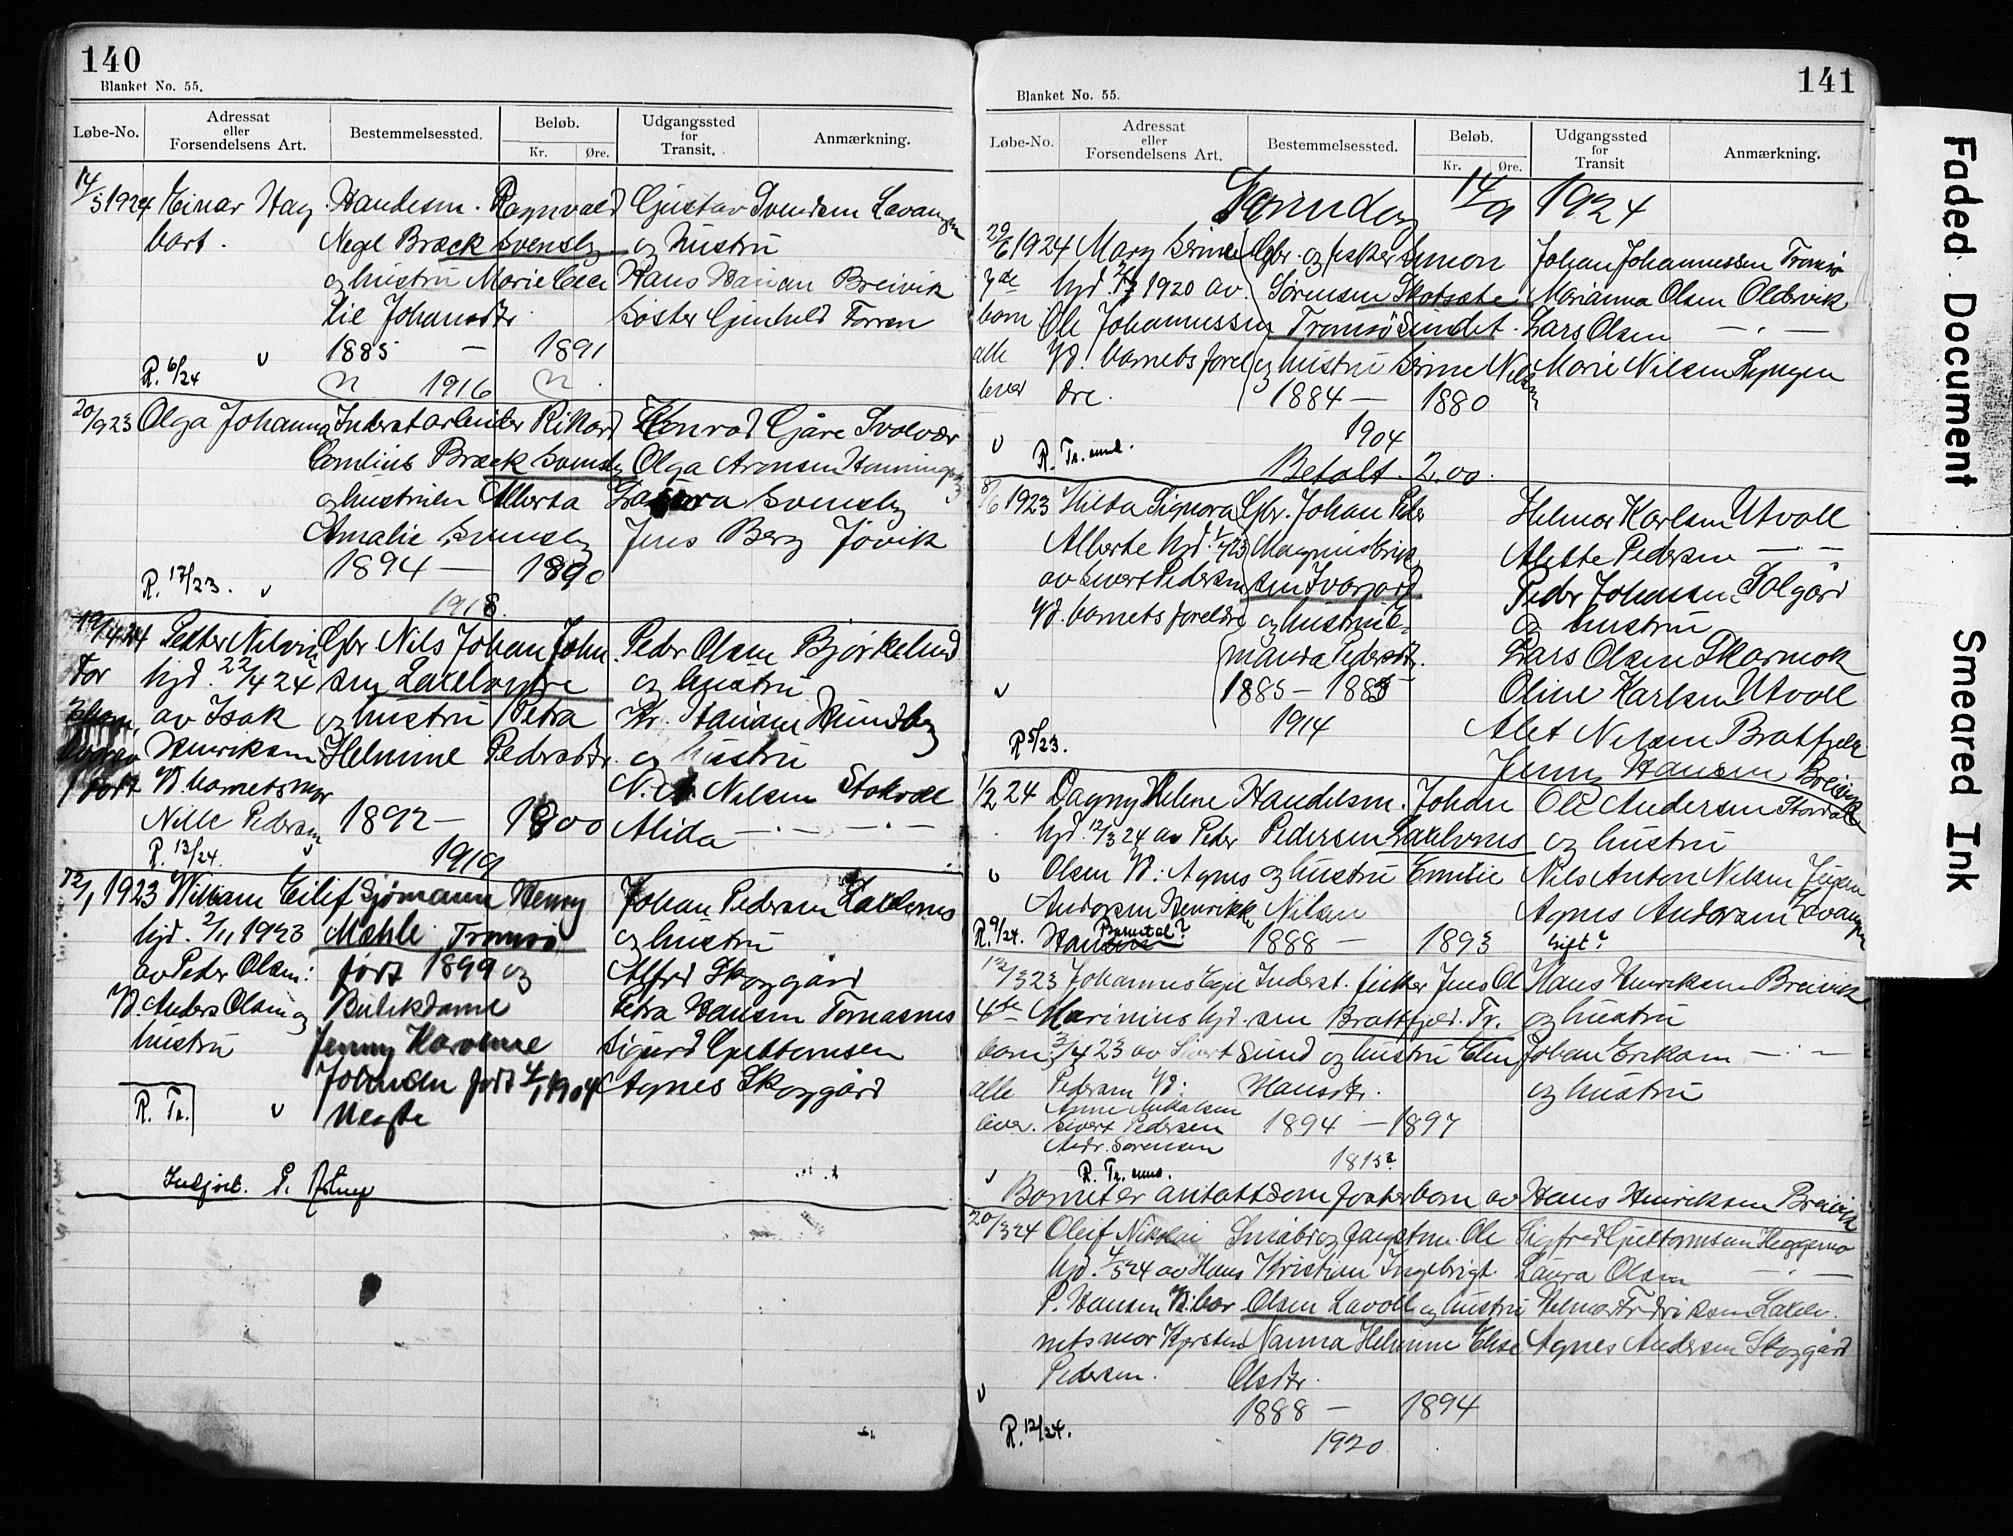 140
Blanket No. 55.
Løbe-No. Adressat eller Forsendelsens Art. Bestemmelsessted. Beløb. Kr. Øre. Udgangssted for Transit. Anmærkning.
14/5 1924 Einar Hag Handesm. Ragnvald Gustav Svendsen Lavangen
bart. Negl Bræck Svensby og hustru
og hustru Marie Ceci Hans Hansen Breivik
lie Johansdtr. Søster Gunhild Forren
1885 — 1891
R. 6/24 v 1916
20/9 23 Olga Johanna Inderstarbeider Rikard Konrad Gjære Svolvær
Cornlius Bræck Svensby Olga Aronsen
og hustruen Alberta Svensby
Amalie Svensby Jens Berg Jøvik
1894 — 1890
R. 17/23. v 1918
19/4 24 Petter Nelvin Gbr Nils Johan John Peder Olsen Bjørkelund
Før hjd. 22/4 24 sen Lakselvøyre og hustru
av Isak og hustru Petra Kr. Hansen Hundberg
Henriksen Helmine Pedersdtr. og hustru
født Vd barnets mor N. Nilsen Stokvol
Nille Pedersen 1892 — 1900 Alida — . — . —
R. 13/24. 1919
12/1 1923 William Eilif Sjømann Henry Johan Pedersen Lakselvnes
hjd. 2/11 1923 Mæhle Tromsø og hustru
av Peder Olsen: født 1899 og Alfred Skoggård
Vd. Anders Olsen og Butikdame Petra Hansen Tomasnes
hustru Jenny Karoline Sigurd Guttormsen
Johansen født 4/1 1904 Agnes Skoggård
R. Tr. v Uegte
P.
141
Blanket No. 55.
Løbe-No. Adressat eller Forsendelsens Art. Bestemmelsessted. Beløb. Kr. Øre. Udgangssted for Transit Anmærkning.
14/9 1924
29/6 1924 Mary Serine Gbr. og fisker Simon Johan Johannessen Tromsø
7de hjd 1920 av Sørensen Skotsæte Marianna Olsen Oldervik
barn Ole Johannessen Tromsøsundet. Lars Olsen — . —
alle Vd. barnets forel og hustru Serine Nilsen Marie Nilsen Lyngen
lever dre. 1884 — 1880
1904
v R. Tr. sund. Betalt 2.00.
8/6 1923 Hilda Signora Gbr. Johan Peder Helmer Karlsen Utvoll
Alberte hjd. 1/7 23 Magnus Erik Alette Pedersen — . —
av Sivert Pedersen sen Ivarjord Peder Johansen Solgård
Vd. barnets foreldre og hustru E- og hustru
manda Pedersdtr. Lars Olsen Skarmok
v 1885 — 1885 Oline Karlsen Utvoll
1914 Alet Nilsen Bratfjell
R 5/23. Jenny Hansen Breivik
1/2 24 Dagny Helene Handelsm. Johan Ole Andersen Stordal
hjd. 12/3 24 av Peder Pedersen Lakselvnes og hustru
v Olsen Vd: Agnes og hustru Emilie Nils Anton Nilsen
Andersen Henrikke Nilsen Agnes Andersen Lavangen
R. 9/24. 1888 — 1893 gift?
12/3 23 Johannes Inderst. fisker Jens Ol Hans Henriksen Breivik
4de Marinius hjd. sen Bratfjeld. Tr. og hustru
barn 3/4 23 av Sivert Sund og hustru Elen Johan Eriksen — . —
alle Pedersen Vd: Hansdtr. og hustru
lever. Anne Mikalsen
Sivert Pedersen 1894 — 1897
Andr. Sørensen 1915?
v R. Tr. sund.
Barnet er antatt som fosterbarn av Hans Henriksen Breivik
20/3 24 Oleif Nikolai Småbr og fangstm. Ole Sigfred Guttormsen Heggemo
hjd. 4/5 24 av Hans Kristian Ingebrigt Laura Olsen — . —
P. Hansen Vd: bar Olsen Lavoll og hustru Helmer Fredriksen Lakselv.
nets mor Kjersten Nanna Helmine Elise Agnes Andersen Skoggård
Pedersen. Olsdtr.
v 1888 — 1894
R. 12/24. 1920
Faded Document
Smeared Ink